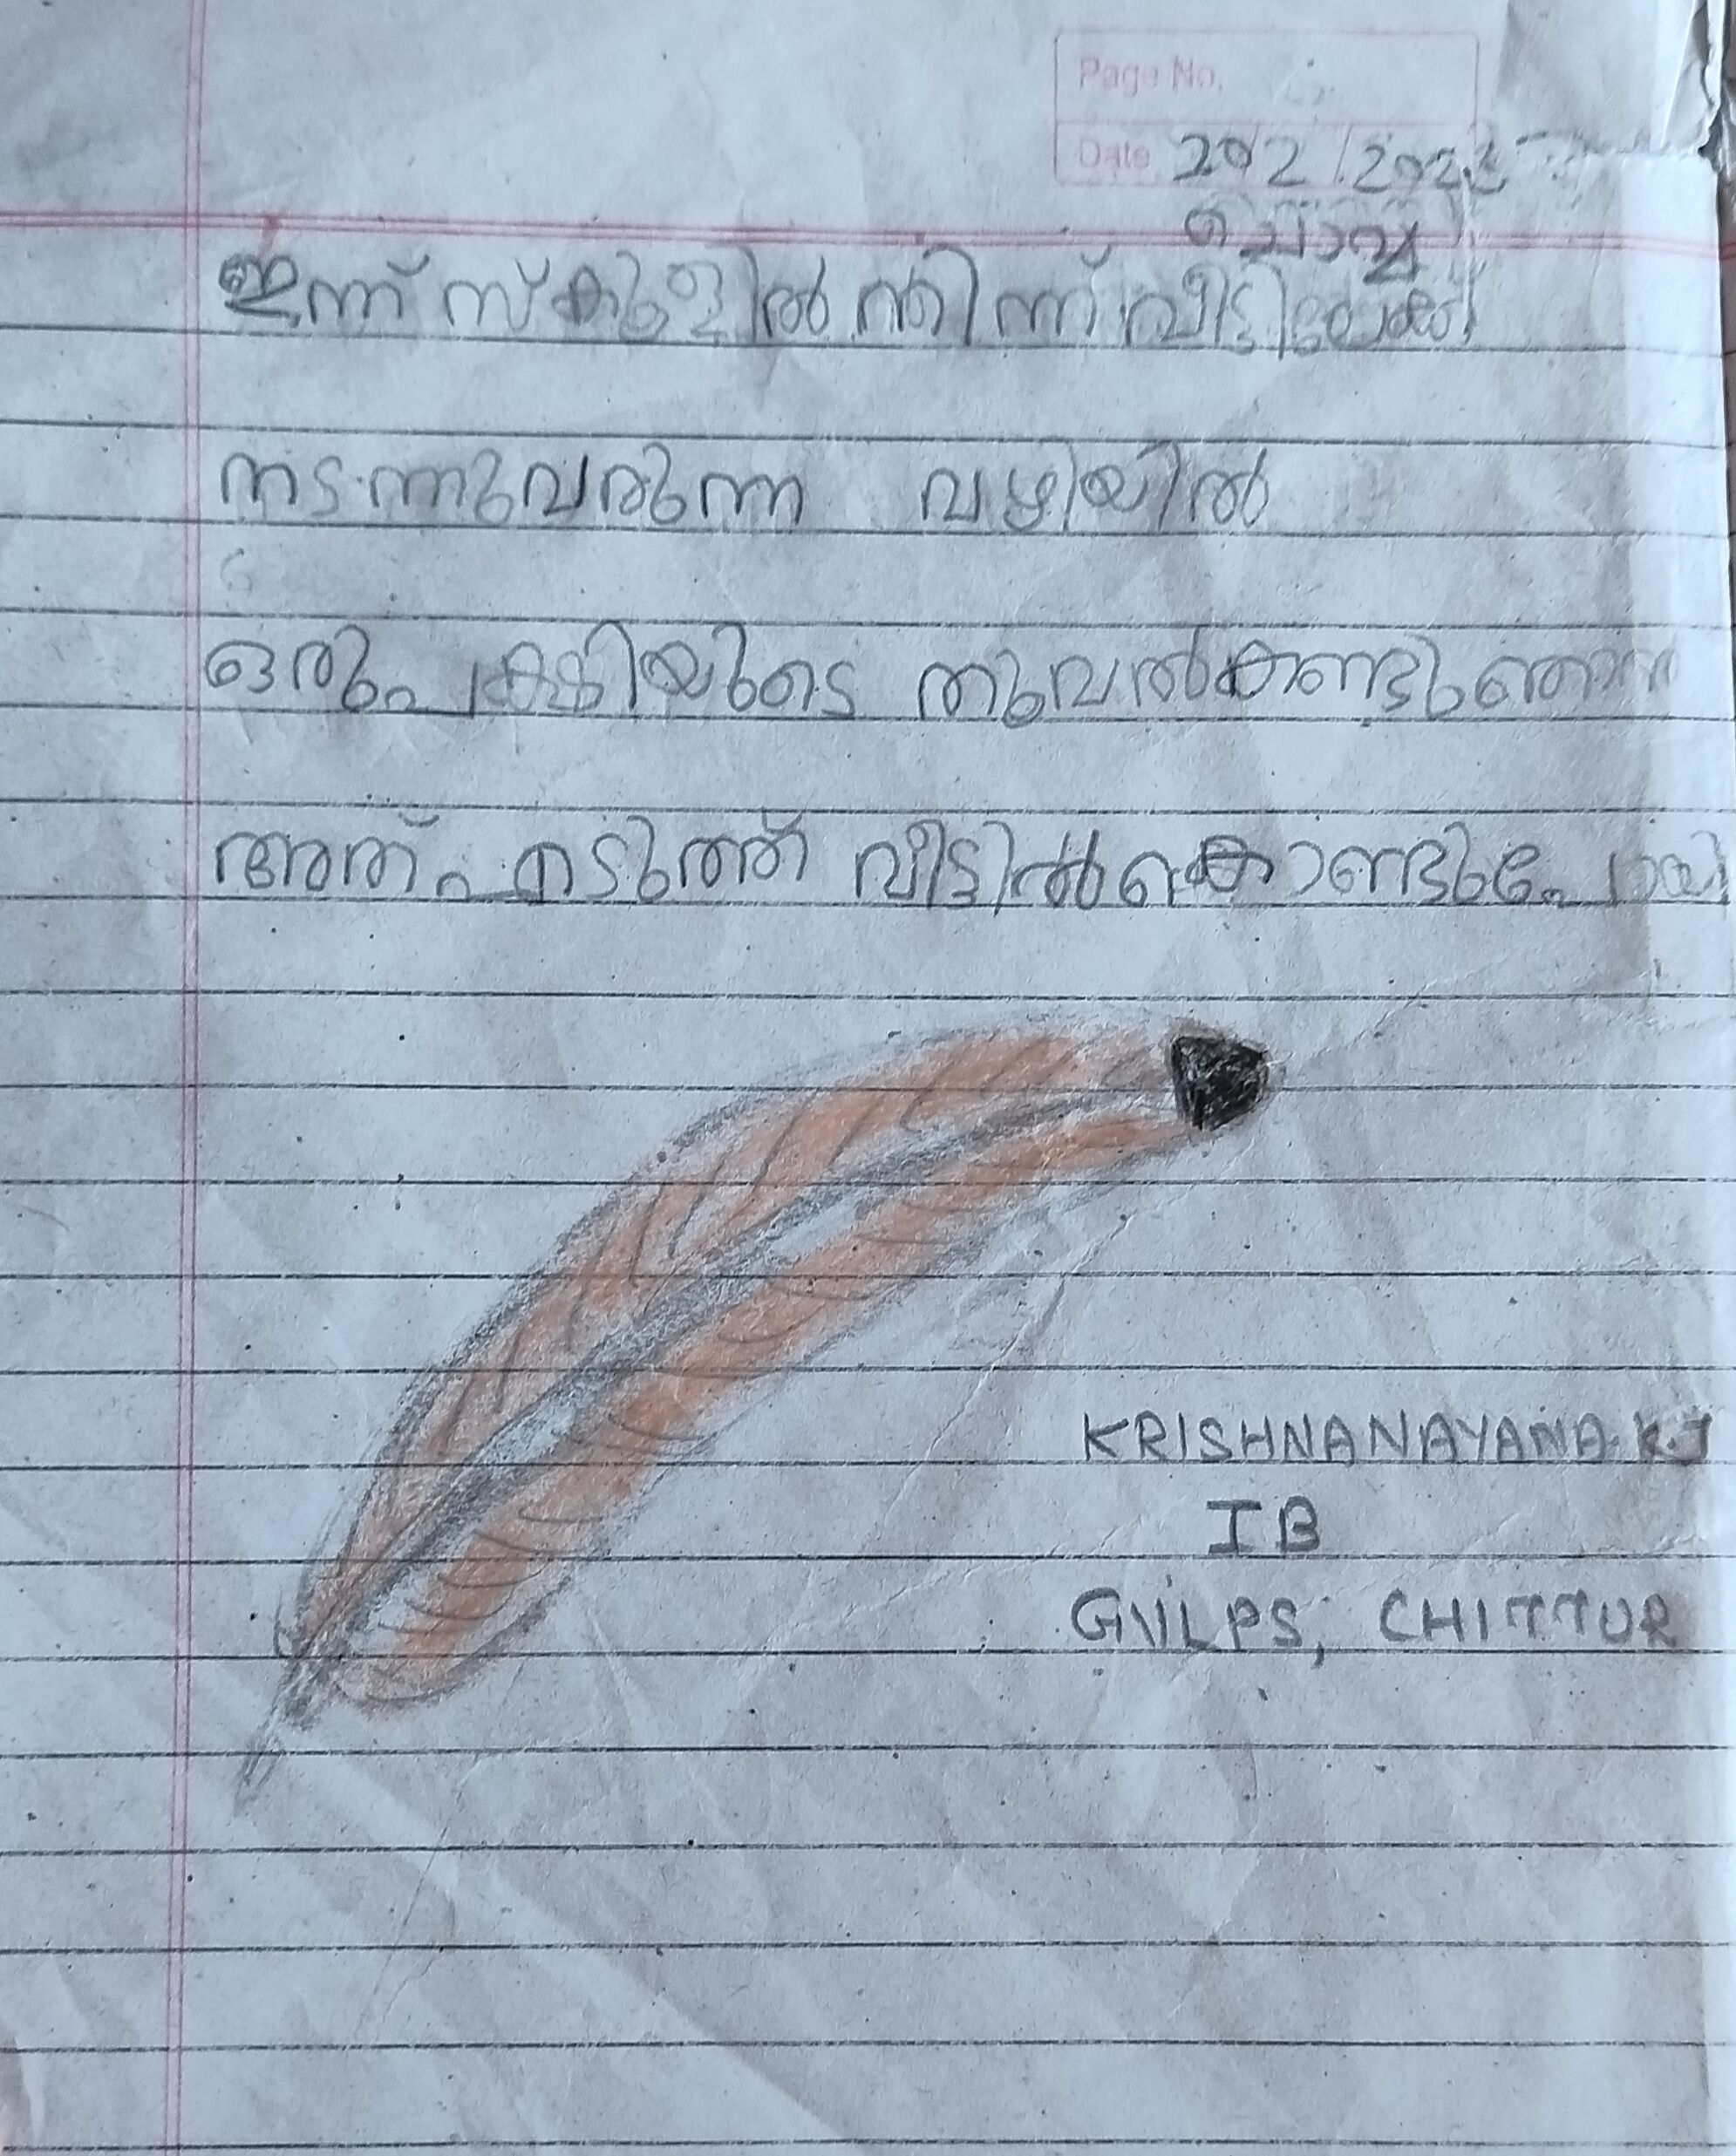 Page No.
Date 20/2/202
ചൊവ്വ
ഇന്ന് സ്കുളിൽ നിന്ന് വീട്ടിലേക്ക്
നടന്നുവരുന്ന വഴിയിൽ
ഒരു പക്ഷിയുടെ തുവൽ കണ്ടു ഞാൻ
അത് എടുത്ത് വീട്ടിൽ കൊണ്ടുപോയി
KRISHNANAYANA K.J
I B
GVLPS, CHITTUR